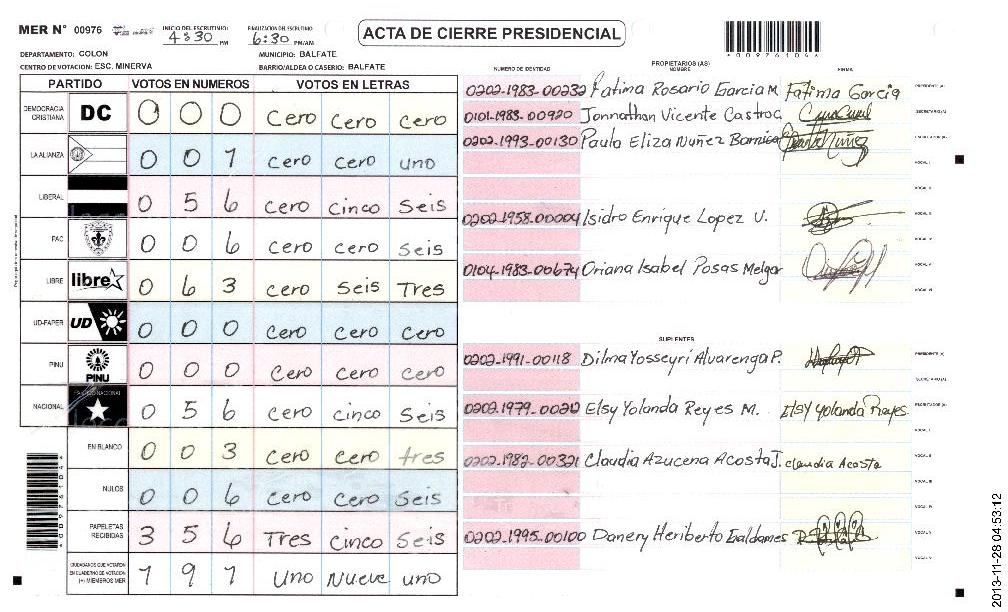 MER N° 00976 INICIO DEL ESCRUTINIO: 4:30 PM FINALIZACION DEL ESCRUTINIO 6:30 PM/AM
ACTA DE CIERRE PRESIDENCIAL
DEPARTAMENTO: COLON MUNICIPIO: BALFATE
CENTRO DE VOTACION: ESC. MINERVA BARRIO/ALDEA O CASERIO: BALFATE
PARTIDO VOTOS EN NUMEROS VOTOS EN LETRAS
DEMOCRACIA CRISTIANA DC 0 0 0 cero cero cero
LA ALIANZA 0 0 1 cero cero uno
LIBERAL 0 5 6 cero cinco seis
PAC 0 0 6 cero cero seis
LIBRE libre 0 6 3 cero seis Tres
UD-FAPER UD 0 0 0 cero cero cero
PINU PINU 0 0 0 cero cero cero
NACIONAL 0 5 6 cero cinco seis
EN BLANCO 0 0 3 cero cero tres
NULOS 0 0 6 cero cero seis
PAPELETAS RECIBIDAS 3 5 6 Tres cinco seis
CIUDADANOS QUE VOTARON EN CUADERNO DE VOTACION (+) MIEMBROS MER 1 9 1 Uno Nueve uno
PROPIETARIOS (AS)
NUMERO DE IDENTIDAD NOMBRE FIRMA
0202-1983-00232 Fatima Rosario Garcia M. Fatima Garcia PRESIDENTE (A)
0101-1983-00920 Jonnathan Vicente Castro C SECRETARIO (A)
0202-1993-00130 Paula Eliza Nuñez Barnica ESCRUTADOR (A)
VOCAL I
VOCAL II
0202-1958-00004 Isidro Enrique Lopez U. VOCAL III
VOCAL IV
0104-1983-00674 Oriana Isabel Posas Melgar VOCAL V
VOCAL VI
SUPLENTES
0202-1991-00118 Dilma Yosseyri Alvarenga P. PRESIDENTE (A)
SECRETARIO (A)
0202-1979-00212 Elsy Yolanda Reyes M. Elsy Yolanda Reyes ESCRUTADOR (A)
VOCAL I
0202-1982-00321 Claudia Azucena Acosta J. claudia Acosta VOCAL II
VOCAL III
VOCAL IV
0202-1995-00100 Danery Heriberto Galdames VOCAL V
VOCAL VI
2013-11-28 04:53:12